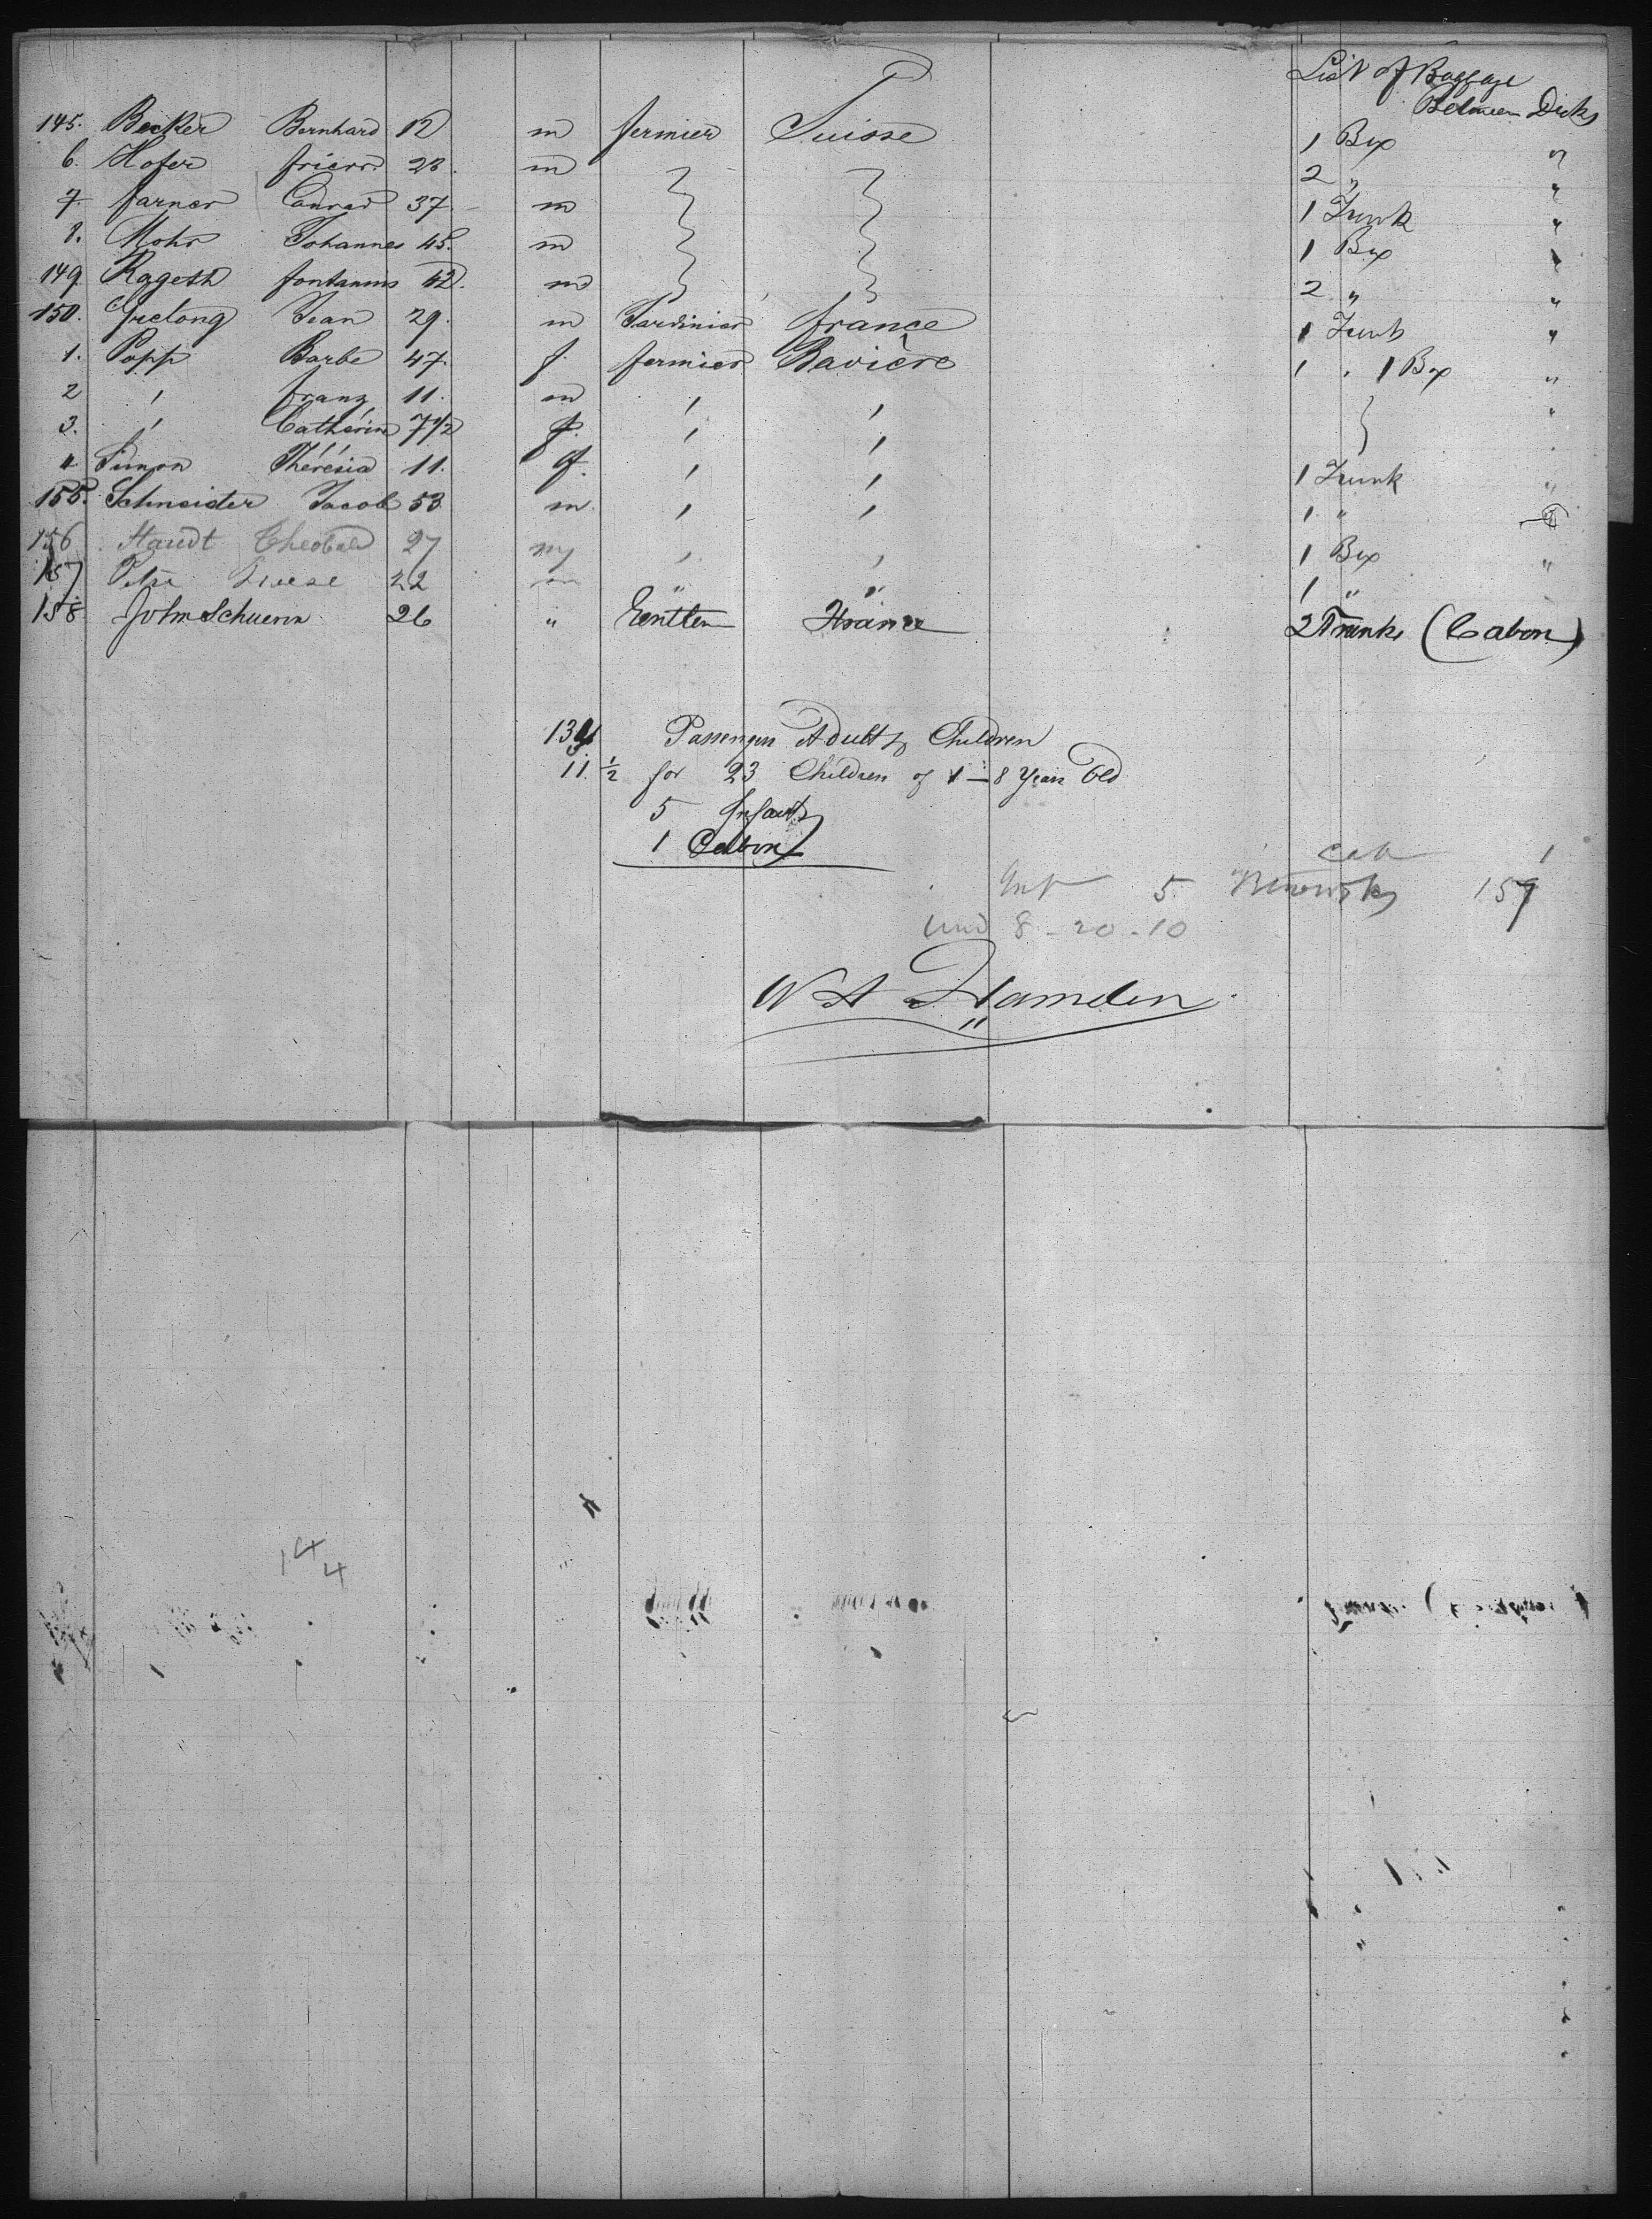 List of Baggage
Between Decks
145. Becker Bernhard 12 m fermier Suisse 1 Box "
6. Hofer friedr. 28. m 2 " "
7 farner Conrad 37. m 1 Trunk "
8. Mohr Johannes 45. m 1 Box "
149. Rageth fontanins 42. m 2 " "
150. Jean 29. m Jardinier france 1 Trunk "
1. Popp Barbe 47. f. fermier Bavière 1 " 1 Box "
2 " franz 11. m " " "
3. " Catherine 7 1/2 f. " "
4 Simon Thérésia 11. f. " " 1 Trunk "
155. Schneider Jacob 53 m. " " 1 " "
156 Staudt Theobald 27 m " " 1 Box "
157 22 m " " 1 "
158 John Schuerin 26 " Gentlem France 2 Trunks (Cabin)
134 Passengers Adults & Children
11. 1/2 for 23 Children of 1 – 8 Years Old
5 Infants
1 Cabin
Cab 1
Inf 5 157
Und 8 - 20 - 10
W A Hamelin
144